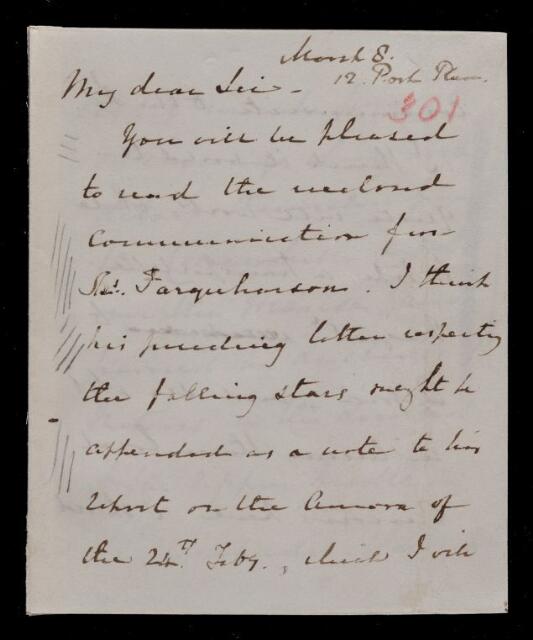 March 8.
12. Park Place.
My dear Sir -
301
You will be pleased
to read the enclosed
communication from
Mr. Farquharson. I think
his preceding letter respecting
the falling stars might be
appended as a note to his
report on the Aurora of
the 24th. Feby., which I will